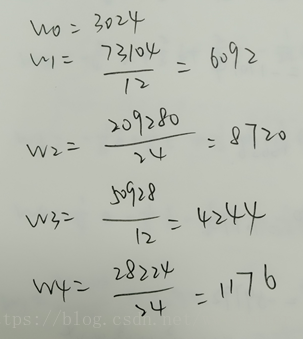 w0 = 3024
w1 = 73104/12 = 6092
w2 = 209280/24 = 8720
w3 = 50928/12 = 4244
w4 = 28224/24 = 1176
tps://blog.csdn.ne